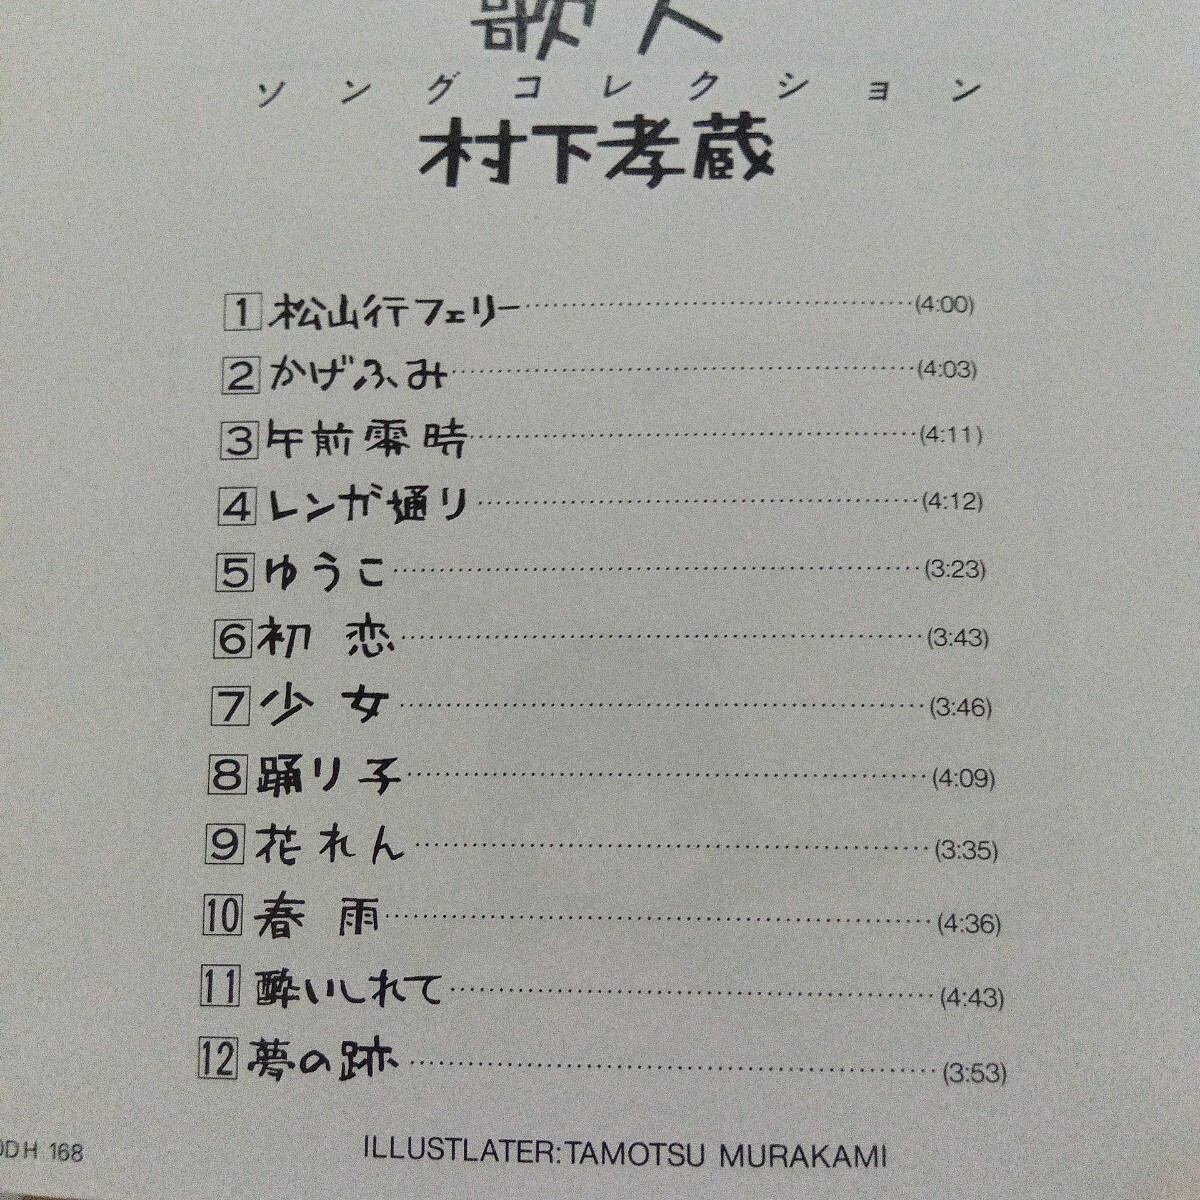 歌人
ソングコレクション
村下孝蔵
1 松山行フェリー (4:00)
2 かげふみ (4:03)
3 午前零時 (4:11)
4 レンガ通り (4:12)
5 ゆうこ (3:23)
6 初恋 (3:43)
7 少女 (3:46)
8 踊り子 (4:09)
9 花れん (3:35)
10 春雨 (4:36)
11 酔いしれて (4:43)
12 夢の跡 (3:53)
DH 168
ILLUSTLATER:TAMOTSU MURAKAMI